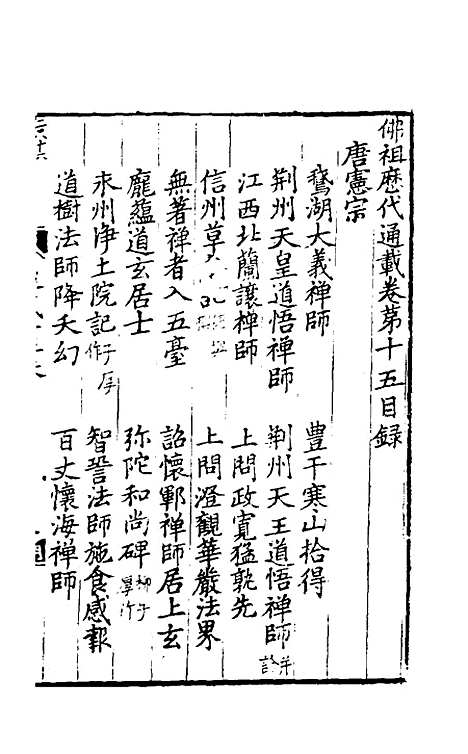 佛祖歷代通載卷第十五目録
唐憲宗
鵞湖大義禅師
豊干寒山拾得
荆州天皇道悟禅師
荆州天王道悟禅師并
江西北蘭讓禅師
上問政寛猛孰先
信州草
上問澄觀華嚴法界
無著禅者入五臺
詔懷鄆禅師居上玄
龐藴道玄居士
弥陀和尚碑柳子厚作
永州浄土院記子厚作
智䛒法師施食感報
道樹法師降夭幻
百丈懷海禅師